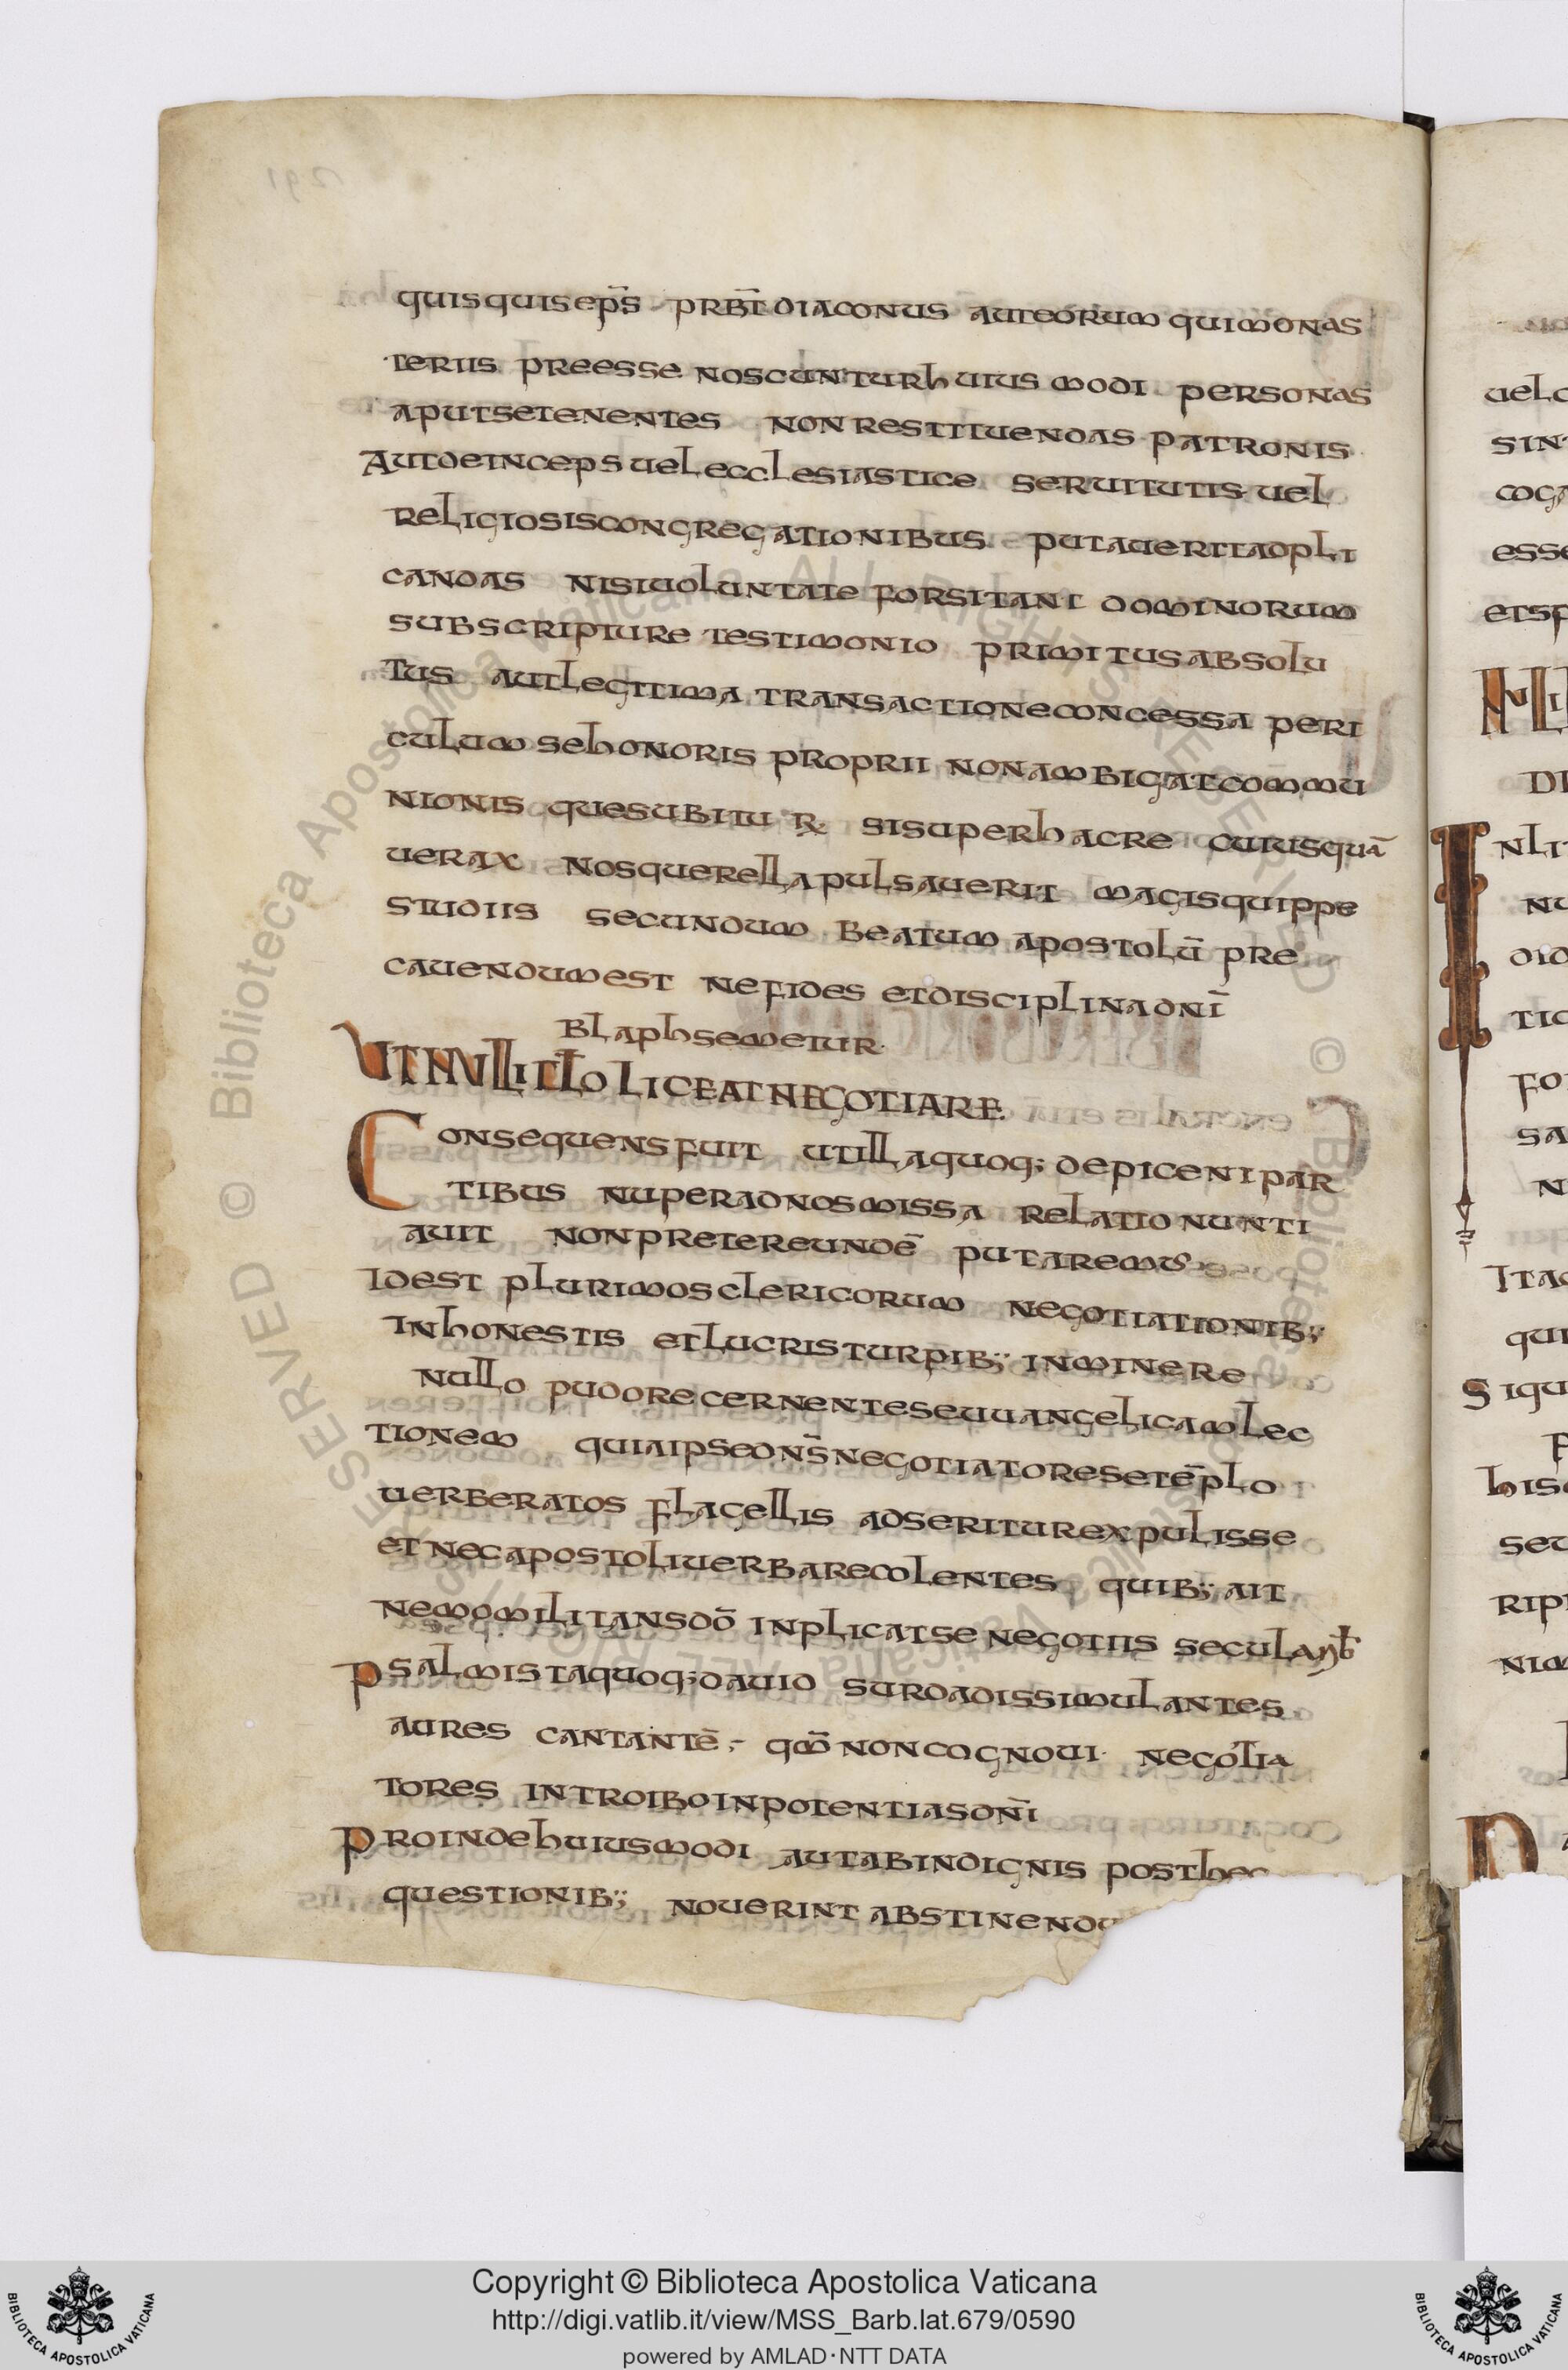 quisquis ep̄s prb̄t diaconus aut eorum qui monas
teriis preesse noscuntur huius modi personas
aput se tenentes non restituendas patronis
Aut deinceps uel ecclesiastice seruitutis uel
religiosis congregationibus putauerit adpli
candas nisi uoluntate forsitant dominorum
subscripture testimonio primitus absolu
tus aut legitima transactione concessa peri
culum se honoris proprii non ambigat commu
nionis que subitur si super hac re cuiusquā
uerax nos querella pulsauerit magis quippe
studiis secundum beatum apostolū pre
cauendum est ne fides et disciplina dnī
blaphsemetur
UT NULLI CLO LICEAT NEGOTIARE
Consequens fuit ut illa quoq; de piceni par
tibus nuper ad nos missa relatio nunti
auit non pretereundē putaremus
Idest plurimos clericorum negotiationib;
inhonestis et lucris turpib; inminere
nullo pudore cernentes euuangelicam lec
tionem quia ipse dns̄ negotiatores e tēplo
uerberatos flagellis adseritur expulisse
et nec apostoli uerba recolentes quib; ait
nemo militans dō inplicat se negotiis secularib
Psalmista quoq; dauid surda dissimulantes
aures cantantē qm̄ non cognoui negotia
tores introibo in potentias dnī
Proinde huiusmodi aut ab indignis post hec
questionib; nouerint abstinendu